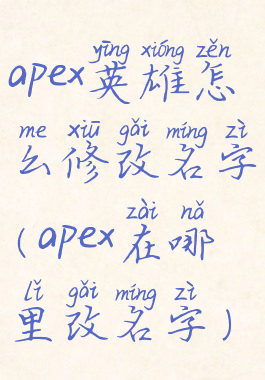 yīng xióng zěn
apex英雄怎
me xiū gǎi míng zì
么修改名字
zài nǎ
(apex在哪
lǐ gǎi míng zì
里改名字)